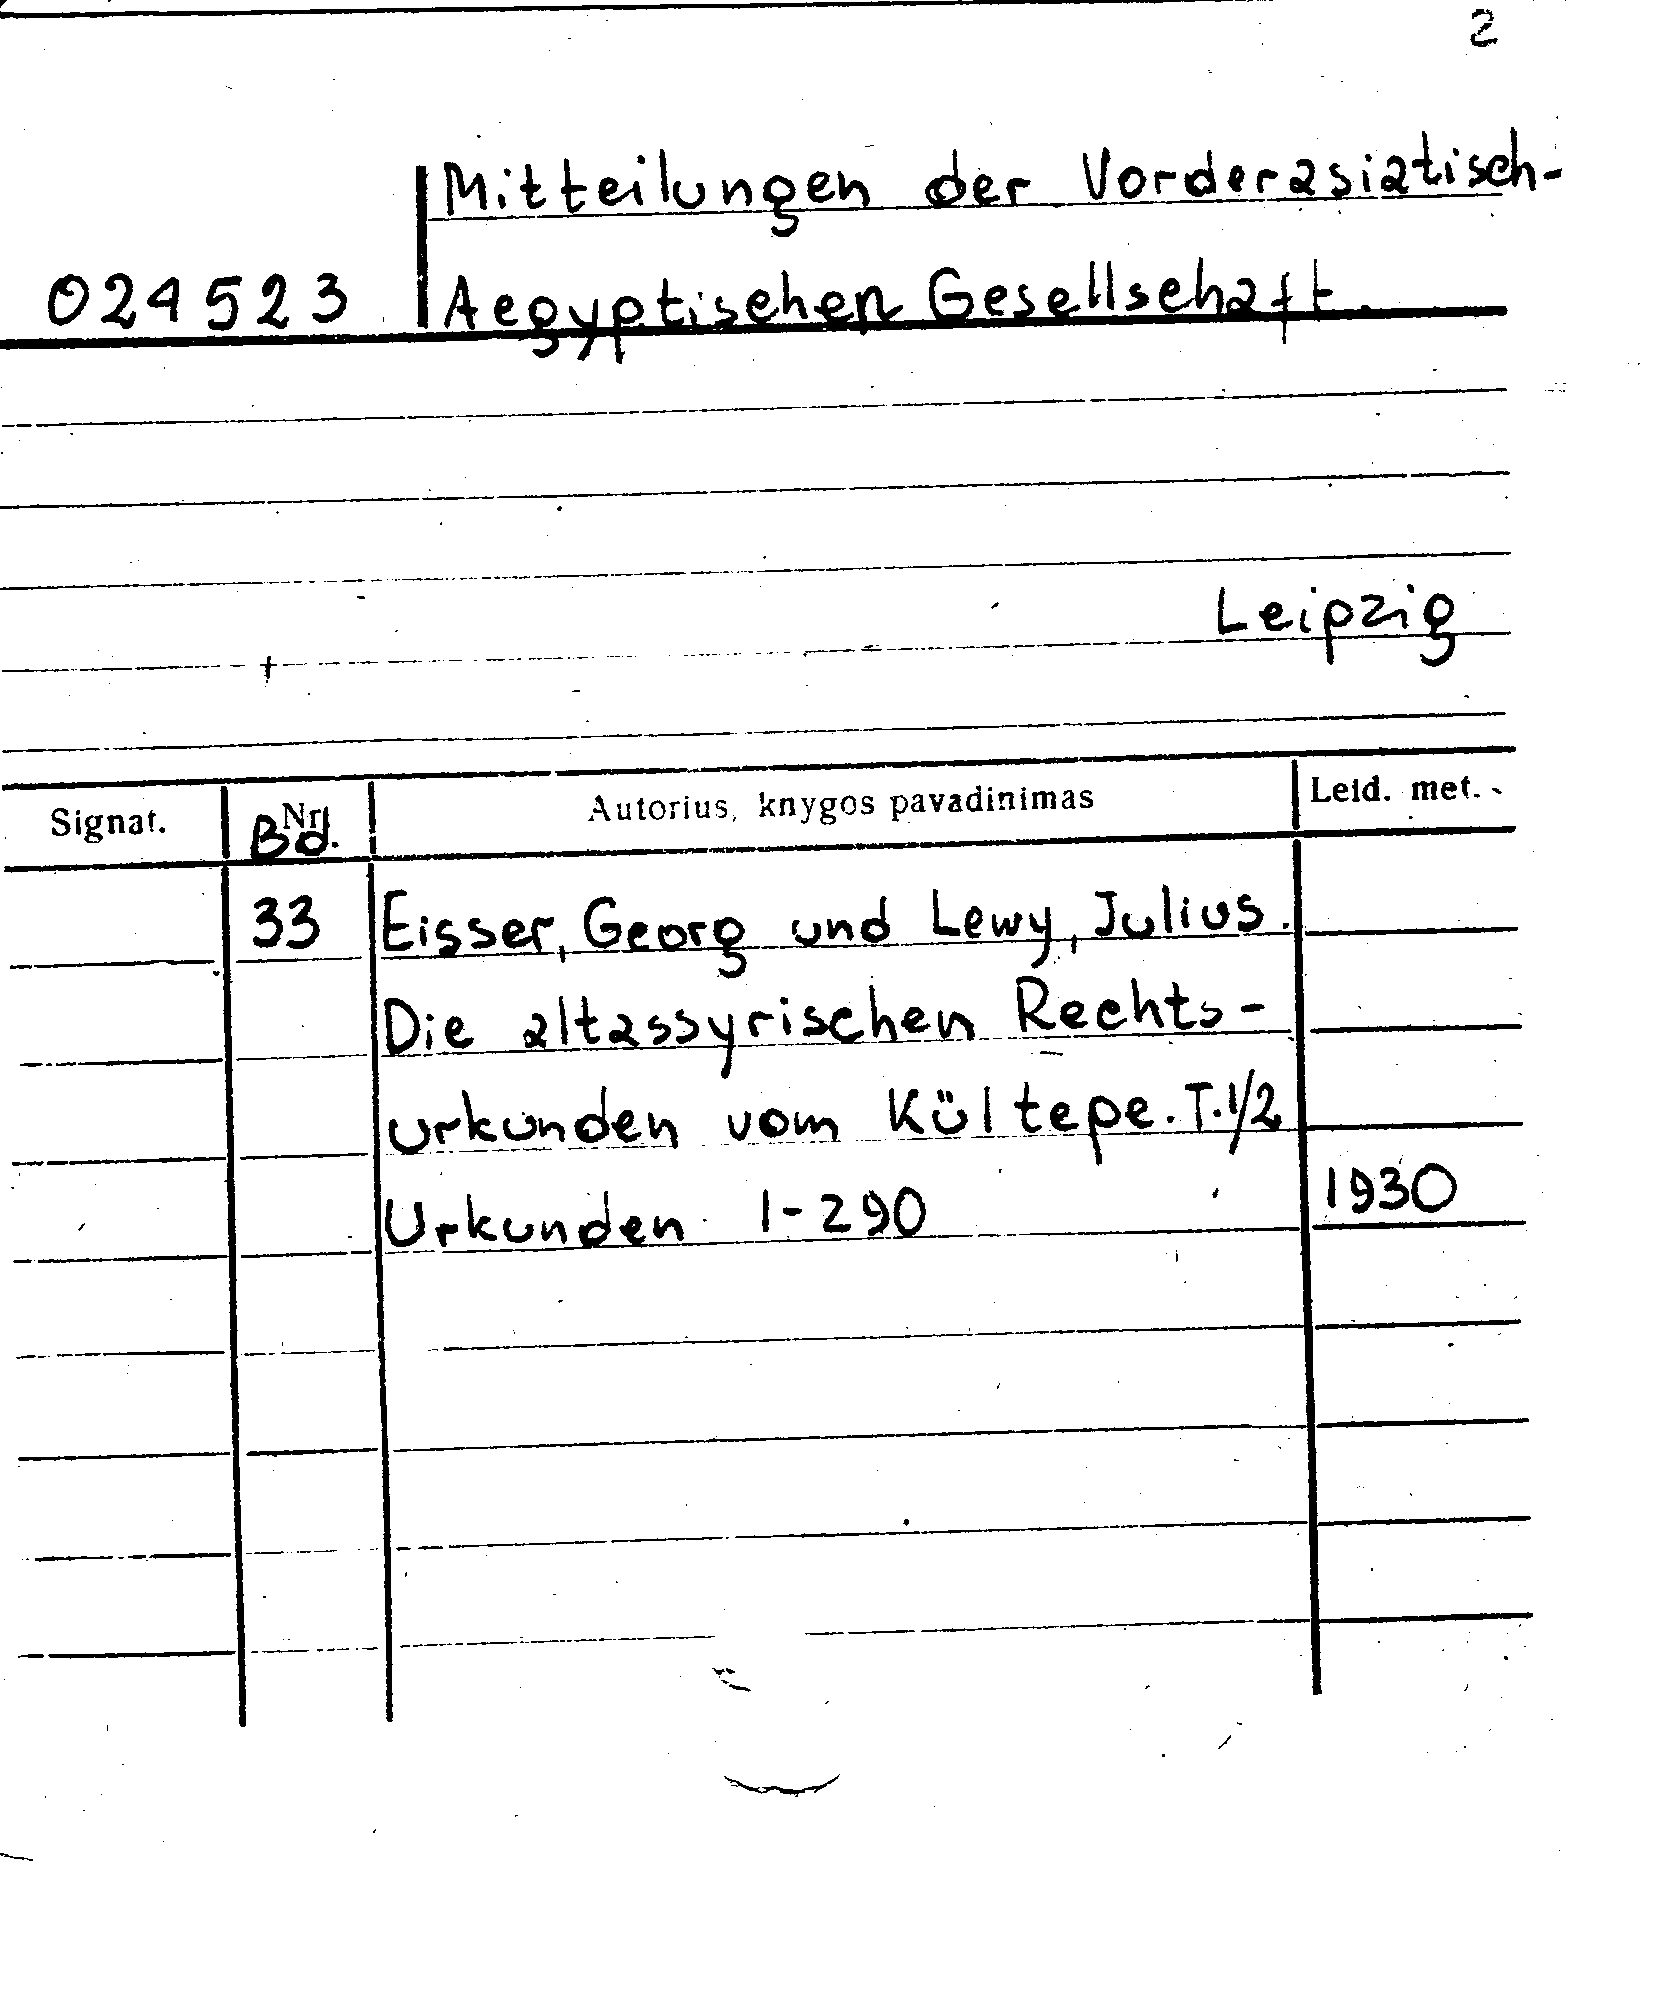 2
Mitteilungen der Vorderasiatisch-
024523 Aegyptischen Gesellschaft.
Leipzig
Signat. Nr. Bd. Autorius, knygos pavadinimas Leid. met.
33 Eisser, Georg und Lewy, Julius.
Die altassyrischen Rechts-
urkunden vom Kültepe. T. 1/2
Urkunden 1-290 1930